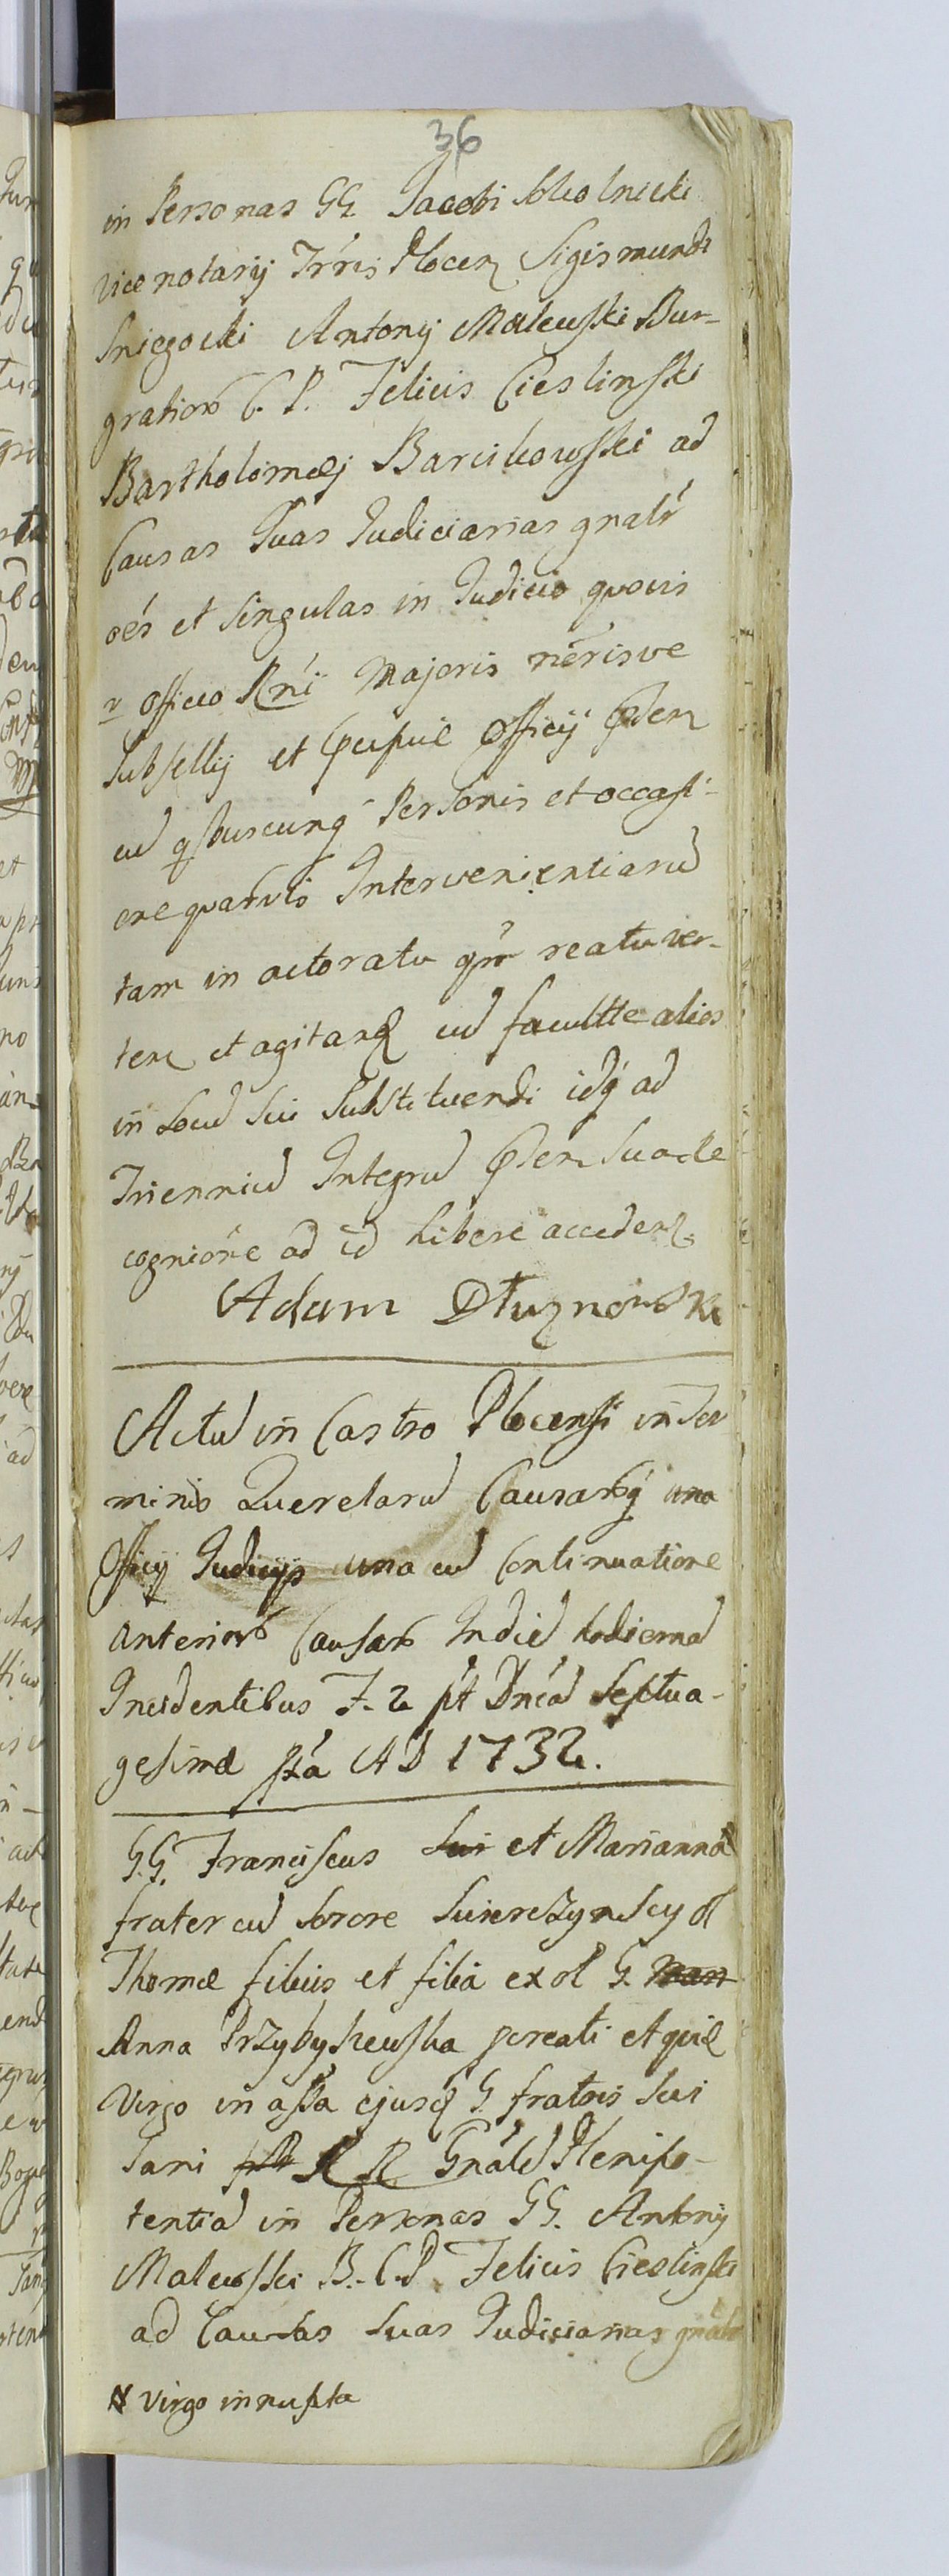 36
in Personas GG Jacobi Skolnicki
vice notarij Trris Plocen Sigismundi
Sniegocki Antonij Malewski Bur-
grabior C. P. Felicis Cieslinski
Bartholomęj Barcikowski ad
Causas suas Judiciarias gnalr
oes et singulas in Judicio quovis
v officio Rni Majoris nerisve
Subsellij et Officij
cud qbuscunq Personis et occasi-
one quarvis Intervenientiarud
tam in actoratu qm reatu ver-
ten et agitand cud facultte alios
in locud sui Substituendi idq ad
Trienniud Integrud suae Re
cognione ad id libere acceden.
Adam Dłuznewski
Actud in Castro Plocensi in Ter
minis Querelarud Causarq una
Officij Judicijs una cud Continuatione
anterior Causar In died hodiernad
Incidentibus F. 2 pt Dncad Septua-
gesimę pxa AD 1732.
G.G. Franciscus et Marianna
frater cud Sorore Swierczynscy ol
Thomę filius et filia ex ol G.
Anna Przybyszewska pcreati et quię
Virgo in assa ejusd G. fratris sui
Gnaled Plenipo-
tentiad in Personas GG. Antonij
Malewski B. C. P. Felicis Cieslinski
ad Causas suas Judiciarias gnalr
Virgo innupta